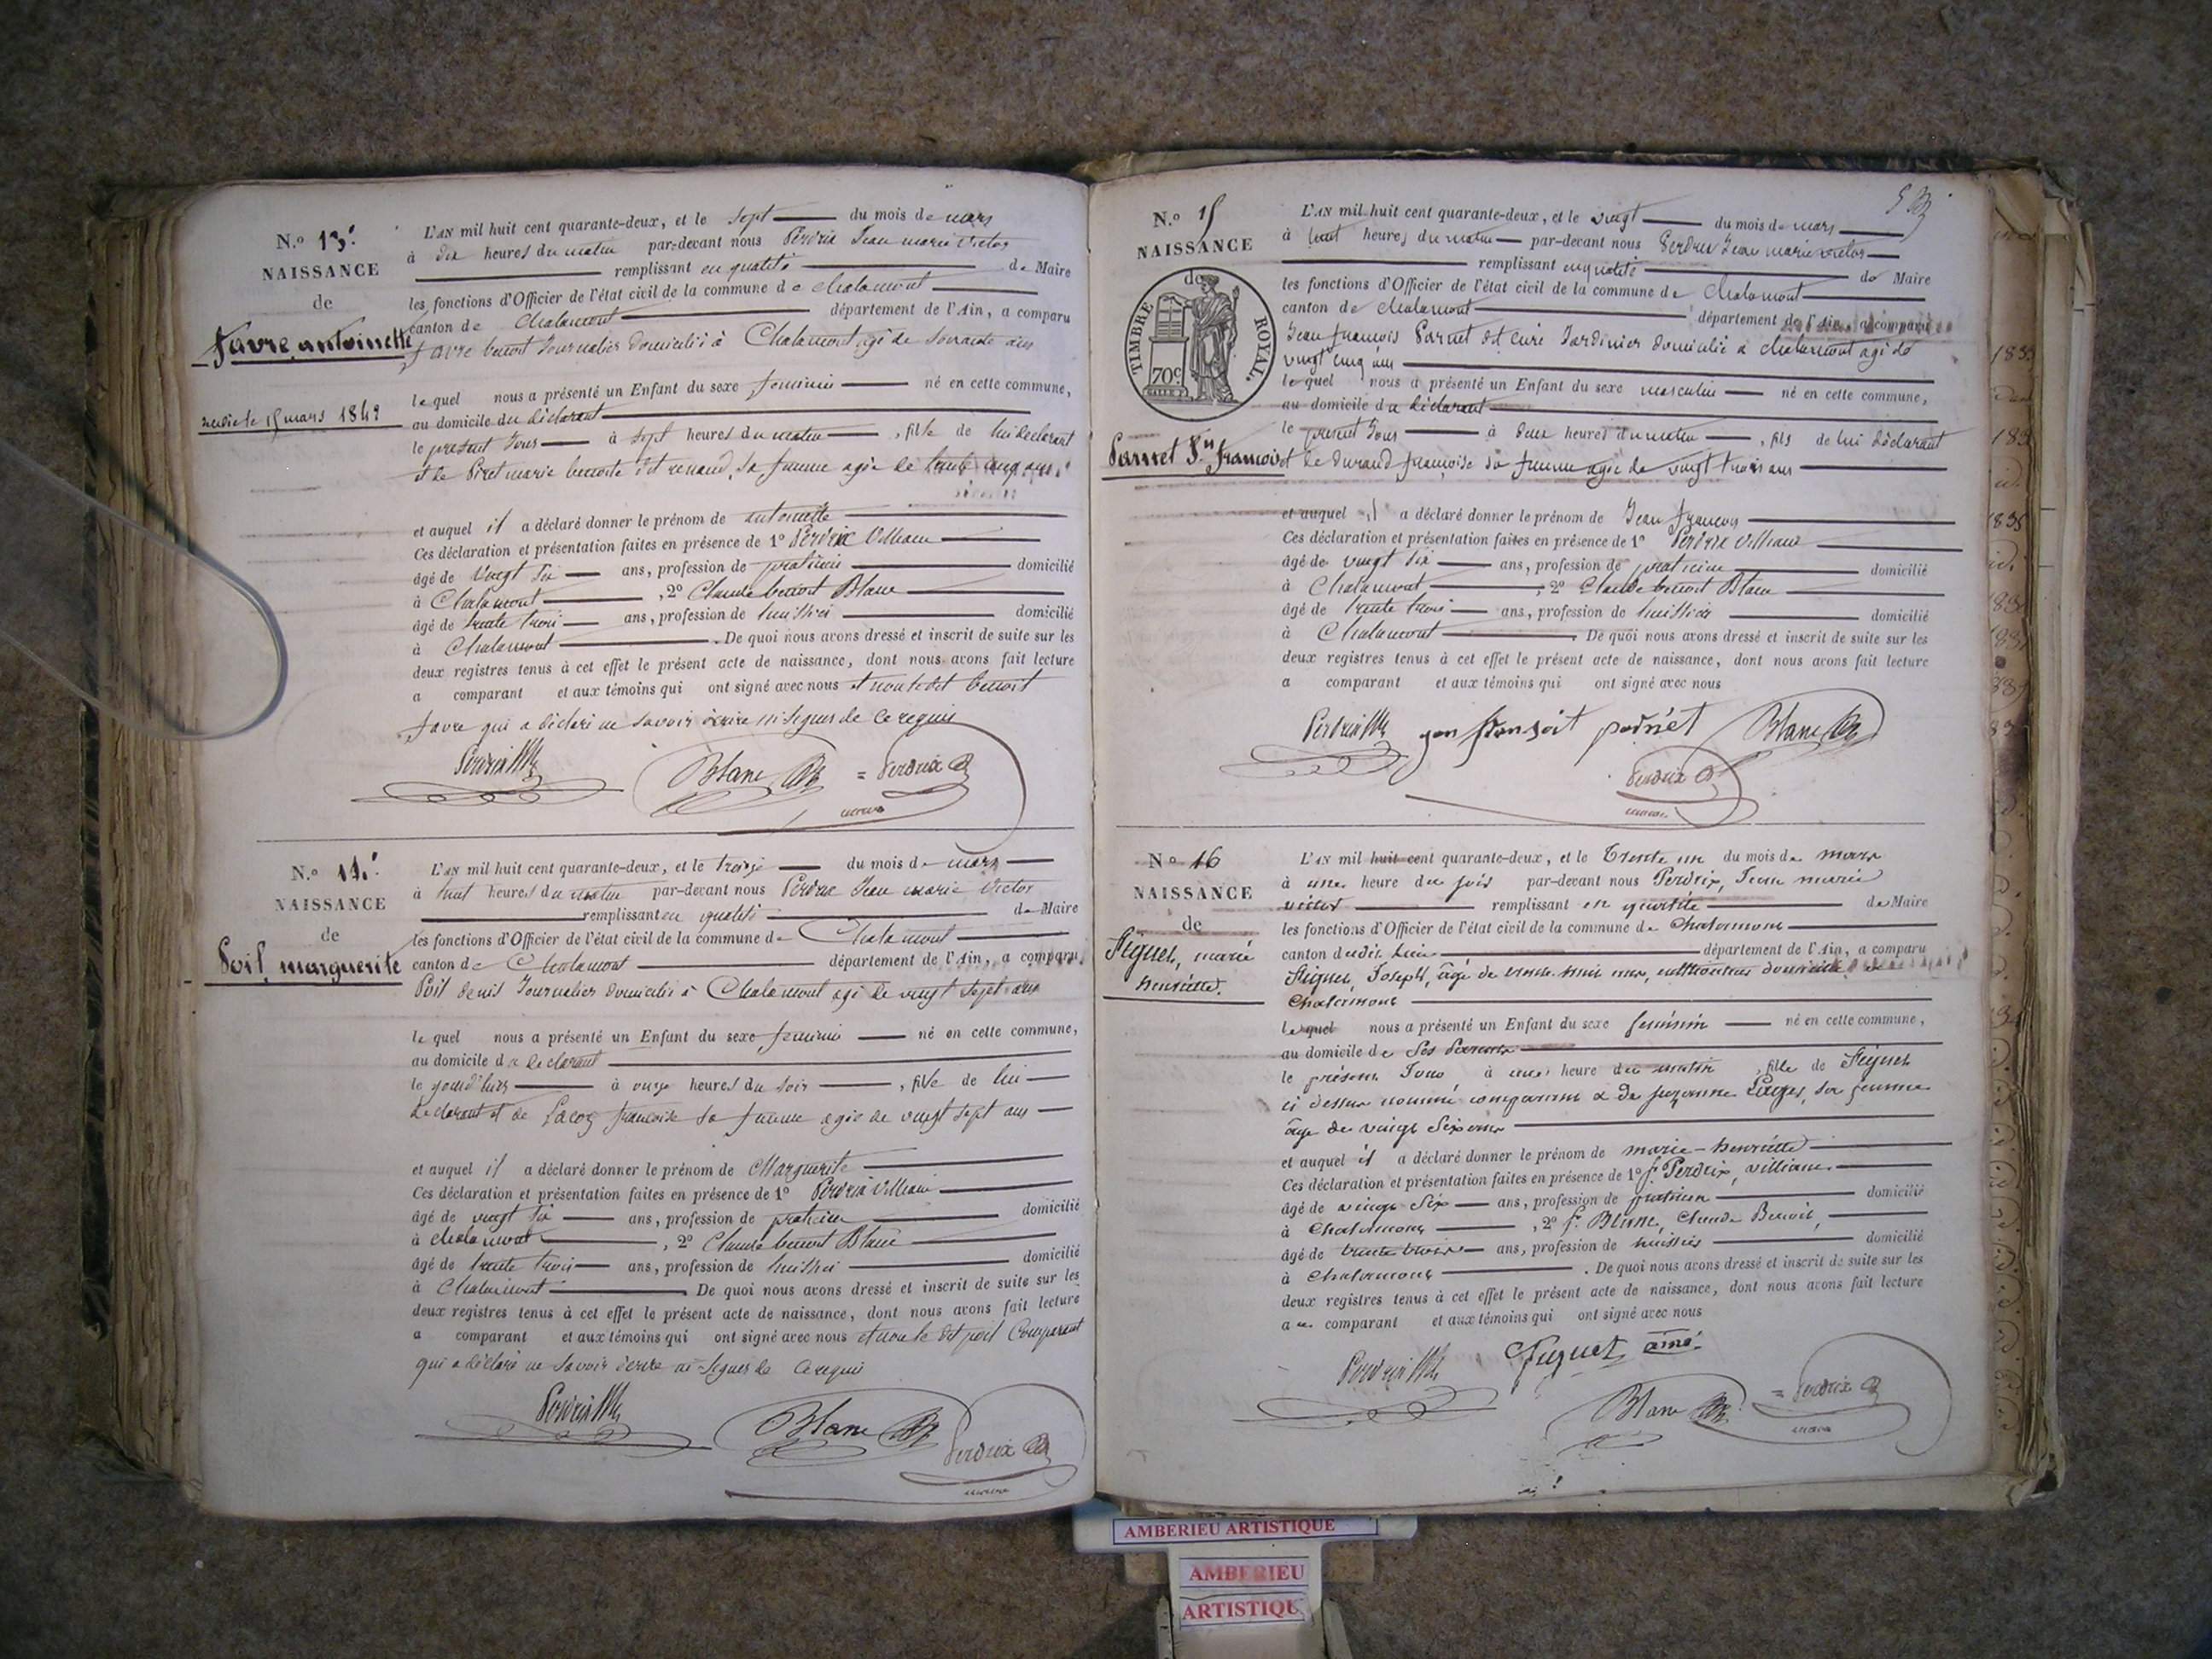 N.o 13.
NAISSANCE
de
favre antoinette
L'AN mil huit cent quarante-deux, et le sept du mois de mars
à dix heures du matin par-devant nous Perdrix Jean marie victor
remplissant en qualité de Maire
les fonctions d'Officier de l'état civil de la commune de chalamont
canton de chalamont département de l'Ain, a comparu
favre benoit Journalier domicilié à Chalamont agé de soixante ans
le quel nous a présenté un Enfant du sexe feminin né en cette commune,
15 mars 1842
au domicile du déclarant
le present Jour à sept heures du matin, fille de lui declarant
et de Piret marie benoite dit renaud, sa femme agée de trente cinq ans
et auquel il a déclaré donner le prénom de antoinette
Ces déclaration et présentation faites en présence de 1o Perdrix Villiam
âgé de vingt six ans, profession de praticien domicilié
à Chalamont, 2o Claude benoit Blanc
âgé de trente trois ans, profession de huissier domicilié
à Chalamont. De quoi nous avons dressé et inscrit de suite sur les
deux registres tenus à cet effet le présent acte de naissance, dont nous avons fait lecture
a comparant et aux témoins qui ont signé avec nous et non ledit benoit
favre qui a déclaré ne savoir écrire ni signer de ce requis
Perdrix Wm Blanc Cb = Perdrix
N.o 14.
NAISSANCE
de
Poil marguerite
L'AN mil huit cent quarante-deux, et le treize du mois de mars
à huit heures du matin par-devant nous Perdrix Jean marie victor
remplissant en qualité de Maire
les fonctions d'Officier de l'état civil de la commune de Chalamont
canton de Chalamont département de l'Ain, a comparu
Poil denis Journalier domicilié à Chalamont agé de vingt sept ans
le quel nous a présenté un Enfant du sexe feminin né en cette commune,
au domicile du declarant
le à onze heures du soir, fille de lui
declarant et de Lacoz françoise sa femme agée de vingt sept ans
et auquel il a déclaré donner le prénom de Marguerite
Ces déclaration et présentation faites en présence de 1o Perdrix Villiam
âgé de vingt six ans, profession de praticien domicilié
à chalamont, 2o Claude benoit Blanc
âgé de trente trois ans, profession de huissier domicilié
à Chalamont. De quoi nous avons dressé et inscrit de suite sur les
deux registres tenus à cet effet le présent acte de naissance, dont nous avons fait lecture
a comparant et aux témoins qui ont signé avec nous et non le dit poil Comparant
qui a déclaré ne savoir écrire ni signer de ce requis
Perdrix Wm Blanc Cb Perdrix
N.o 15
NAISSANCE
de
TIMBRE ROYAL.
70c.
Parnet Jn françois
L'AN mil huit cent quarante-deux, et le vingt du mois de mars
à huit heures du matin par-devant nous Perdrix Jean marie victor
remplissant en qualité de Maire
les fonctions d'Officier de l'état civil de la commune de Chalamont
canton de chalamont département de l'Ain, a comparu
Jean françois Parnet dit curé Jardinier domicilié a chalamont agé de
vingt cinq ans
le quel nous a présenté un Enfant du sexe masculin né en cette commune,
au domicile du déclarant
le present Jour à deux heures du matin, fils de lui déclarant
et de Durand françoise sa femme agée de vingt trois ans
et auquel il a déclaré donner le prénom de Jean françois
Ces déclaration et présentation faites en présence de 1o Perdrix Villiam
âgé de vingt six ans, profession de praticien domicilié
à Chalamont, 2o Claude benoit Blanc
âgé de trente trois ans, profession de huissier domicilié
à Chalamont. De quoi nous avons dressé et inscrit de suite sur les
deux registres tenus à cet effet le présent acte de naissance, dont nous avons fait lecture
a comparant et aux témoins qui ont signé avec nous
Perdrix Wm Blanc Cb
Perdrix
No 16
NAISSANCE
de
Figuet, marie
henriette.
L'AN mil huit cent quarante-deux, et le Trente un du mois de mars
à une heure du soir par-devant nous Perdrix, Jean marie
victor remplissant en qualité de Maire
les fonctions d'Officier de l'état civil de la commune de Chalamont
canton dudit lieu département de l'Ain, a comparu
Figuet, Joseph, âgé de trente huit ans, cultivateur domicilié à
Chalamont
le quel nous a présenté un Enfant du sexe féminin né en cette commune,
au domicile de ses parents
le présent Jour à une heure du matin, fille de Figuet
ci dessus nommé comparant & de suzanne sa femme
âgé de vingt six ans
et auquel il a déclaré donner le prénom de marie-henriette
Ces déclaration et présentation faites en présence de 1o Perdrix, villiam.
âgé de vingt Six ans, profession de praticien domicilié
à Chalamont, 2o Blanc, Claude Benoit,
âgé de trente trois ans, profession de huissier domicilié
à Chalamont. De quoi nous avons dressé et inscrit de suite sur les
deux registres tenus à cet effet le présent acte de naissance, dont nous avons fait lecture
au comparant et aux témoins qui ont signé avec nous
Perdrix Wm Figuet ainé
Blanc Cb = Perdrix
AMBERIEU ARTISTIQUE
AMBERIEU
ARTISTIQU